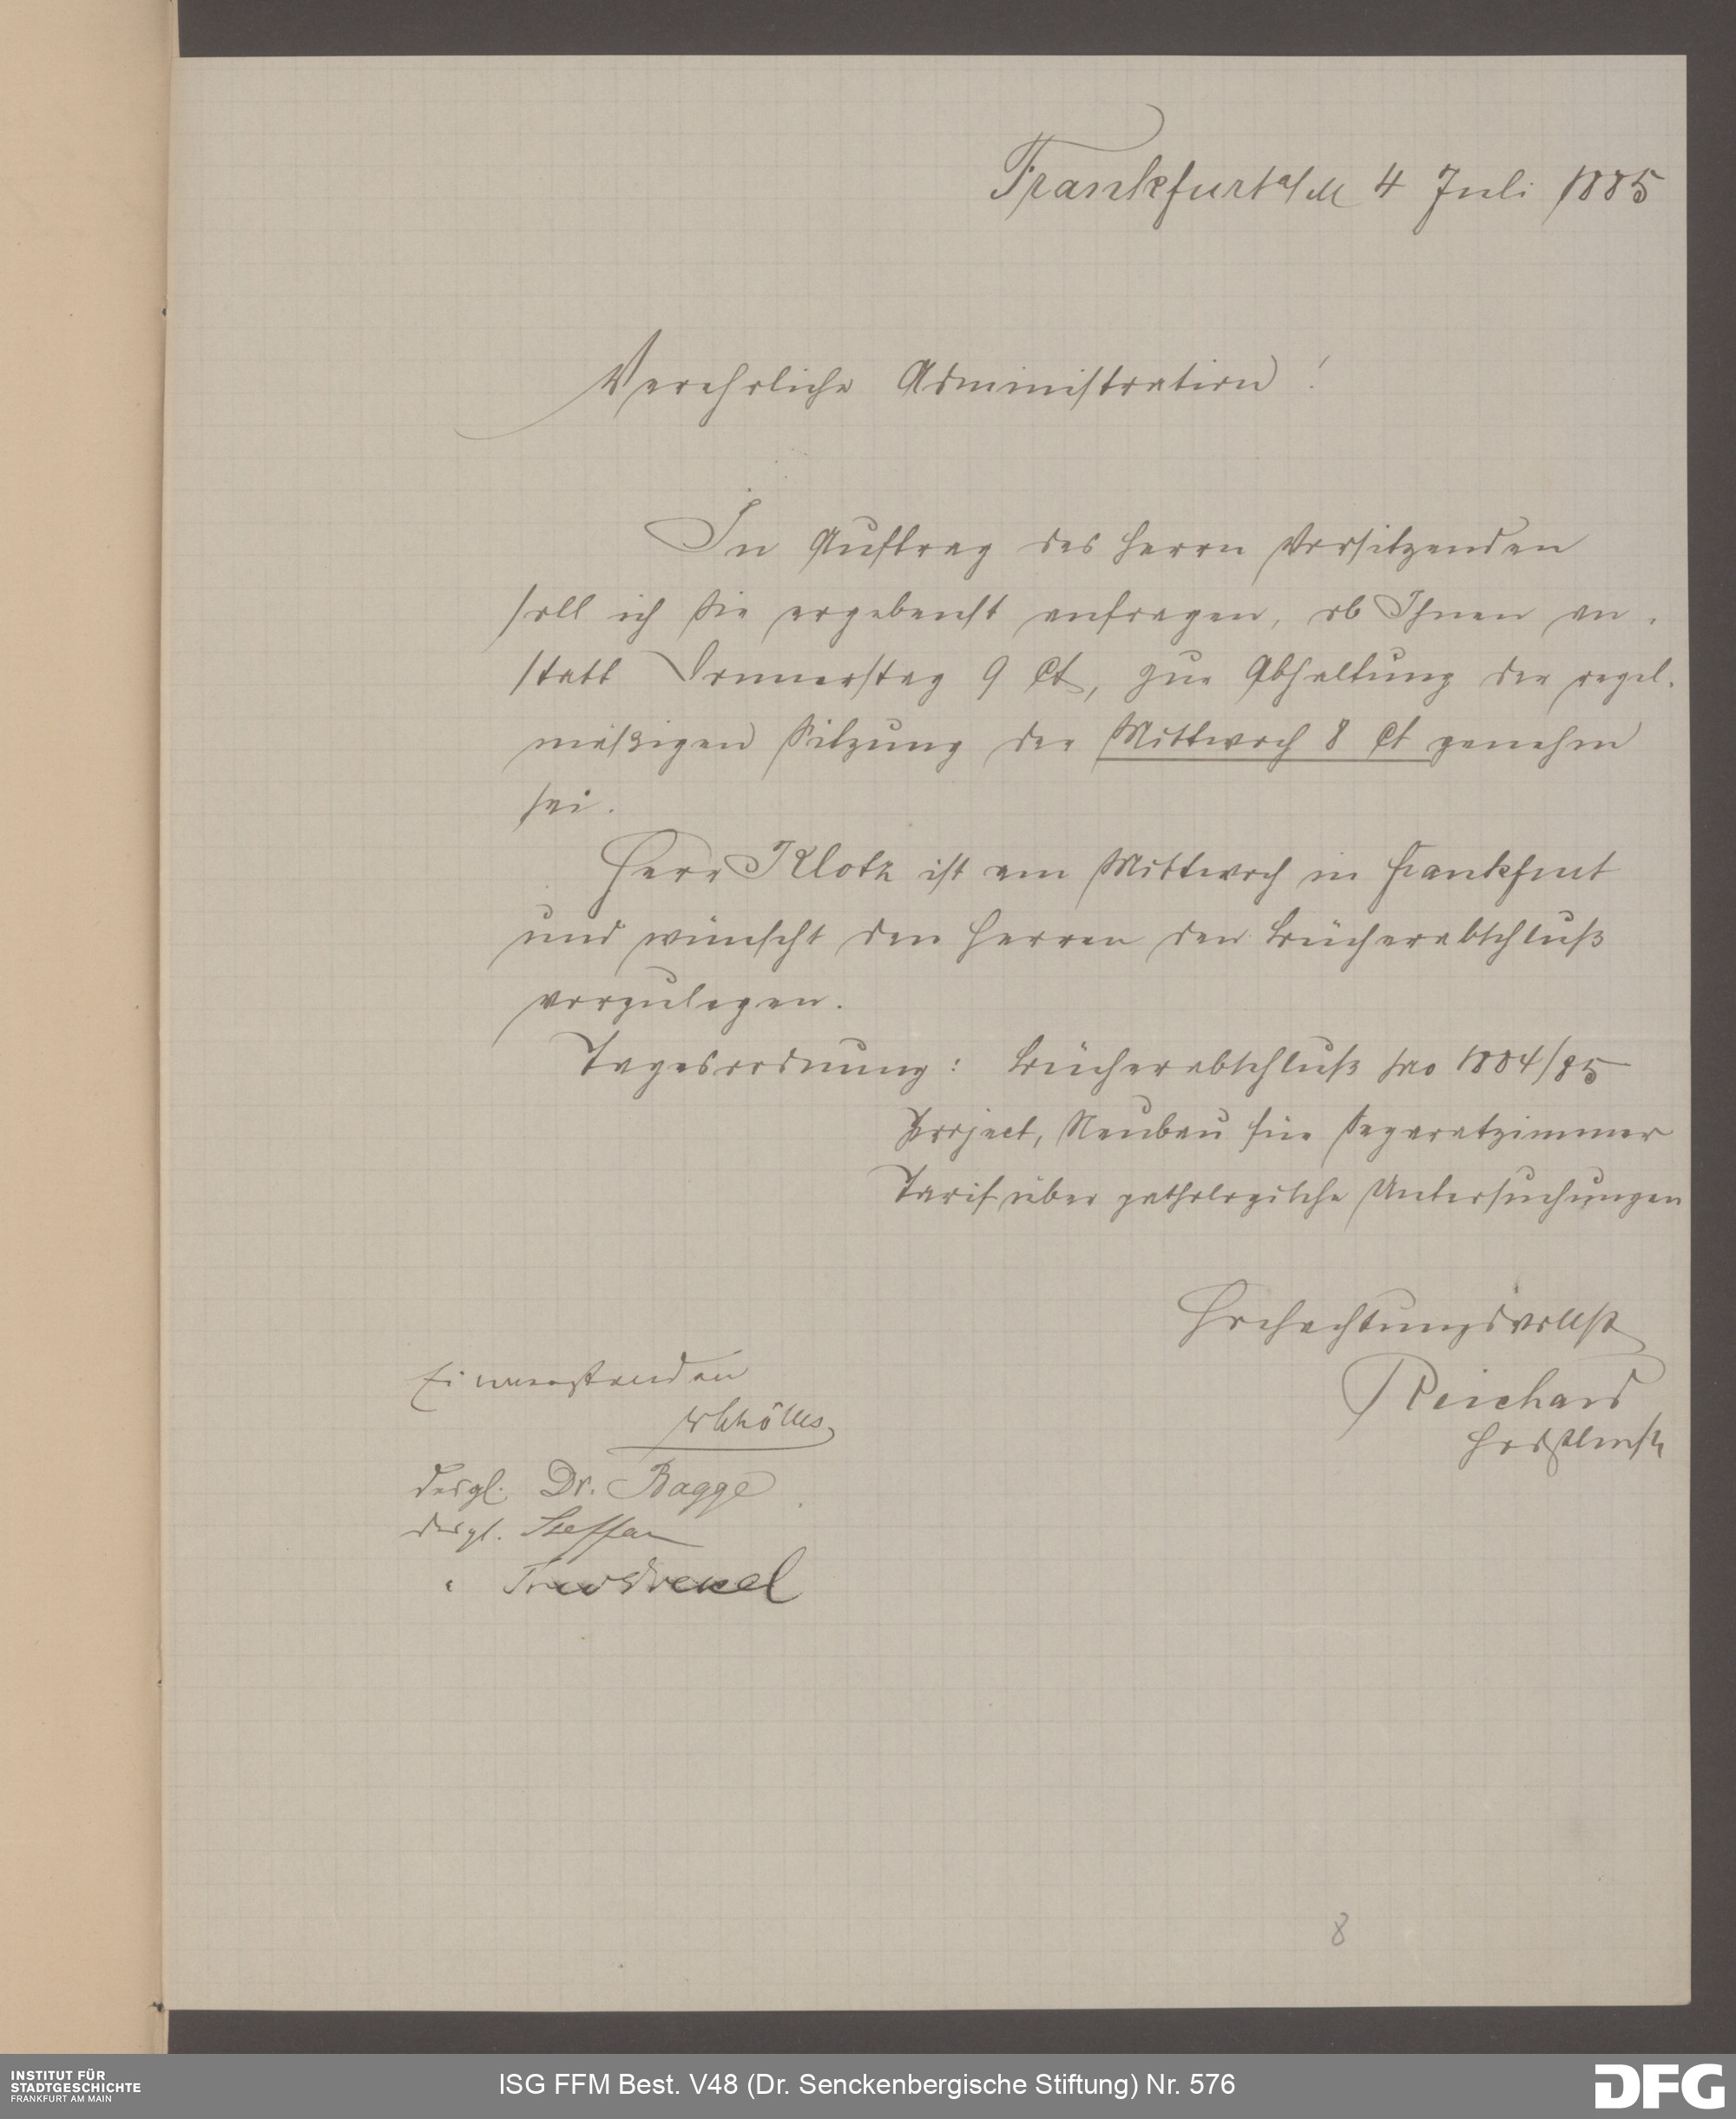 Frankfurt a/M 4 Juli 1885
Verehrliche Administration!
Im Auftrag des Herrn Vorsitzenden
soll ich Sie ergebenst anfragen, ob Ihnen an-
statt Donnerstag 9 Ct, zur Abhaltung der regel-
mäßigen Sitzung der Mittwoch 8 Ct genehm
sei.
Herr Klotz ist am Mittwoch in Frankfurt
und wünscht den Herren den Bücherabschluß
vorzulegen.
Tagesordnung: Bücherabschluß pro 1884/85
Project, Neubau für Separatzimmer
Tarif über pathologische Untersuchungen
Hochachtungsvollst
Reichard
Einverstanden
desgl. Dr. Bagge
desgl. Steffan
"
8
INSTITUT FÜR
STADTGESCHICHTE
FRANKFURT AM MAIN
ISG FFM Best. V48 (Dr. Senckenbergische Stiftung) Nr. 576
DFG